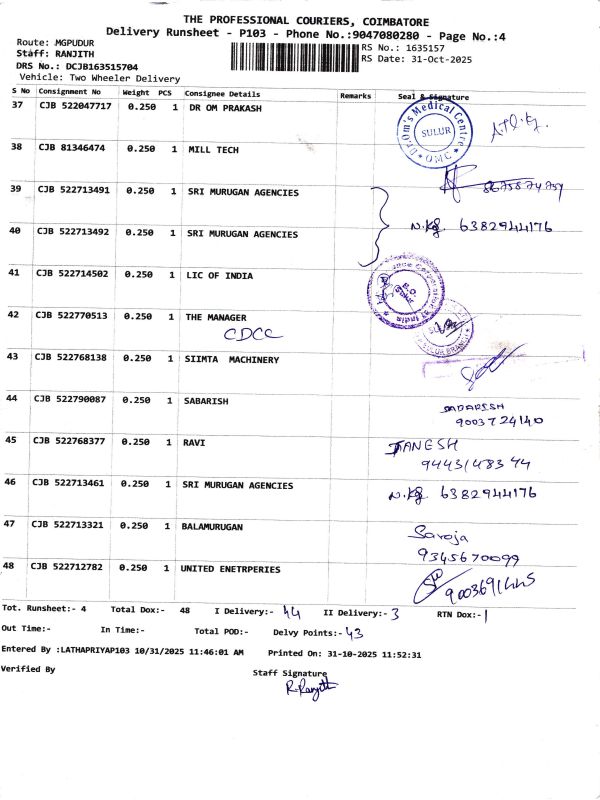 THE PROFESSIONAL COURIERS, COIMBATORE
Delivery Runsheet - P103 - Phone No.:9047080280 - Page No.:4
Route: MGPUDUR
Staff: RANJITH
DRS No.: DCJB163515704
Vehicle: Two Wheeler Delivery
RS No.: 1635157
RS Date: 31-Oct-2025
S No Consignment No Weight PCS Consignee Details Remarks Seal & Signature
37 CJB 522047717 0.250 1 DR OM PRAKASH
Dr.Om's Medical Centre
SULUR
OMC
38 CJB 81346474 0.250 1 MILL TECH
8675874759
39 CJB 522713491 0.250 1 SRI MURAGAN AGENCIES
40 CJB 522713492 0.250 1 SRI MURUGAN AGENCIES
6382944176
41 CJB 522714502 0.250 1 LIC OF INDIA
B.O.
Sulur
42 CJB 522770513 0.250 1 THE MANAGER
CDCC
43 CJB 522768138 0.250 1 SIIMTA MACHINERY
44 CJB 522790087 0.250 1 SABARISH
SABARISH
9003724140
45 CJB 522768377 0.250 1 RAVI
9443148344
46 CJB 522713461 0.250 1 SRI MURUGAN AGENCIES 6382944176
47 CJB 522713321 0.250 1 BALAMURUGAN
Saroja
9345670099
48 CJB 522712782 0.250 1 UNITED ENETRPERIES
9003691445
Tot. Runsheet:- 4 Total Dox:- 48 I Delivery:- 44 II Delivery:- 3 RTN Dox:- 1
Out Time:- In Time:- Total POD:- Delvy Points:- 43
Entered By :LATHAPRIYAP103 10/31/2025 11:46:01 AM Printed On: 31-10-2025 11:52:31
Verified By
Staff Signature
R. Ranjith